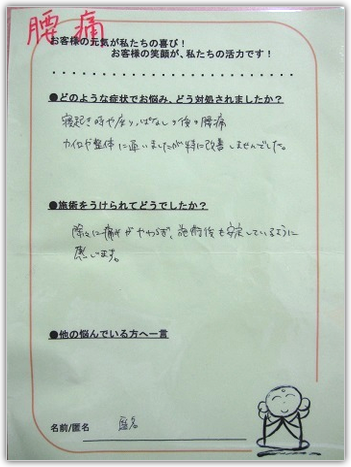 腰痛
お客様の元気が私たちの喜び!
お客様の笑顔が、私たちの活力です!
●どのような症状でお悩み、どう対処されましたか?
寝起き時や座りっぱなしの後の腰痛
カイロや整体に通いましたが特に改善しませんでした。
●施術をうけられてどうでしたか?
除々に痛みがやわらぎ、施術後も安定しているように
感じます。
●他の悩んでいる方へ一言
名前/匿名 匿名